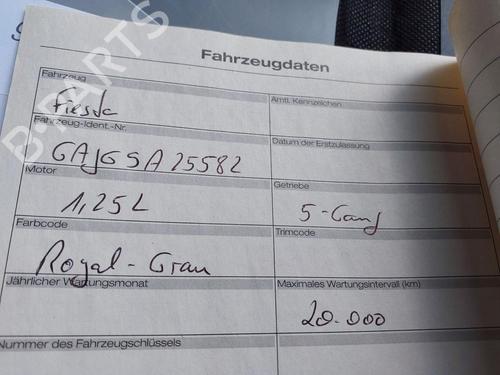 Fahrzeugdaten
Fahrzeug
Fiesta
Amtl. Kennzeichen
Fahrzeug-Ident.-Nr.
GAJGSA25582
Datum der Erstzulassung
Motor
1,25L
Getriebe
5-Gang
Farbcode
Royal-Grau
Trimcode
Jährlicher Wartungsmonat
Maximales Wartungsintervall (km)
20.000
Nummer des Fahrzeugschlüssels
B-PARTS